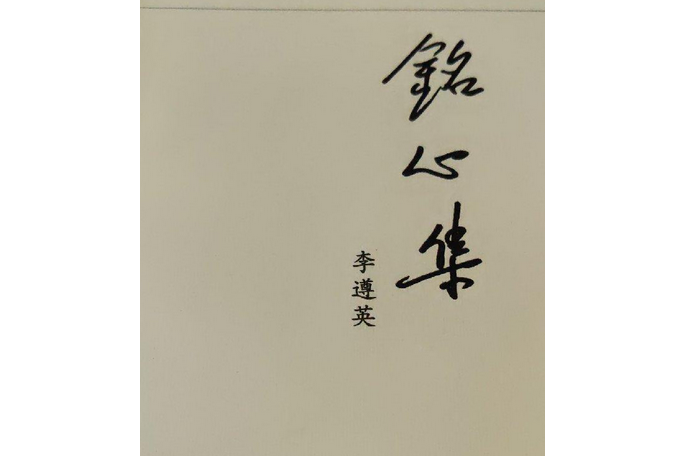 銘心集
李遵英